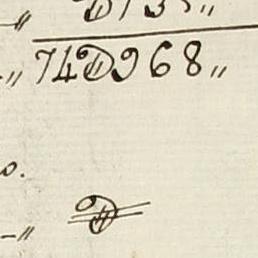 „ 74$968„
o.
–„ $